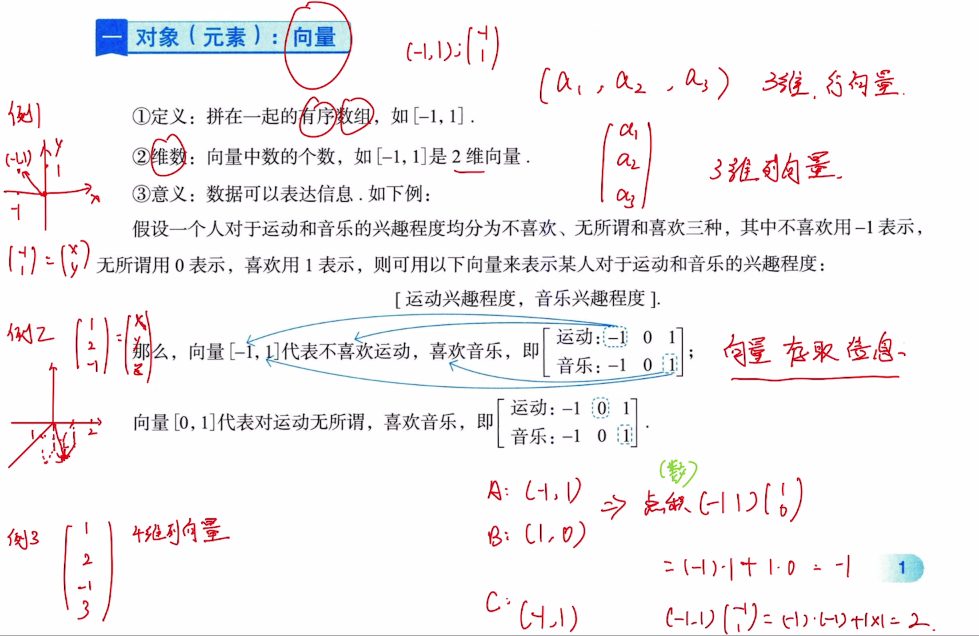 一 对象（元素）：向量
(-1,1); (-1 1)
(a₁, a₂, a₃) 3维.行向量.
例1
①定义：拼在一起的有序数组，如[-1, 1] .
(-1,1) y
1
-1
x
②维数：向量中数的个数，如[-1, 1]是2维向量 .
(a₁ a₂ a₃) 3维列向量.
③意义：数据可以表达信息 . 如下例：
假设一个人对于运动和音乐的兴趣程度均分为不喜欢、无所谓和喜欢三种，其中不喜欢用-1表示，
(-1 1) = (x y)
无所谓用0表示，喜欢用1表示，则可用以下向量来表示某人对于运动和音乐的兴趣程度：
[运动兴趣程度，音乐兴趣程度].
例2 (1 2 -1) = (x y z)
那么，向量[-1, 1]代表不喜欢运动，喜欢音乐，即[运动: -1 0 1
音乐: -1 0 1];
向量 存取信息.
1 2
向量[0, 1]代表对运动无所谓，喜欢音乐，即[运动: -1 0 1
音乐: -1 0 1].
例3 (1 2 -1 3) 4维列向量
A: (-1,1)
B: (1,0)
C: (-1,1)
(数)
⇒ 点积 (-1 1)(1 0)
= (-1)·1 + 1·0 = -1
(-1,1)(-1 1) = (-1)·(-1)+1×1 = 2.
1